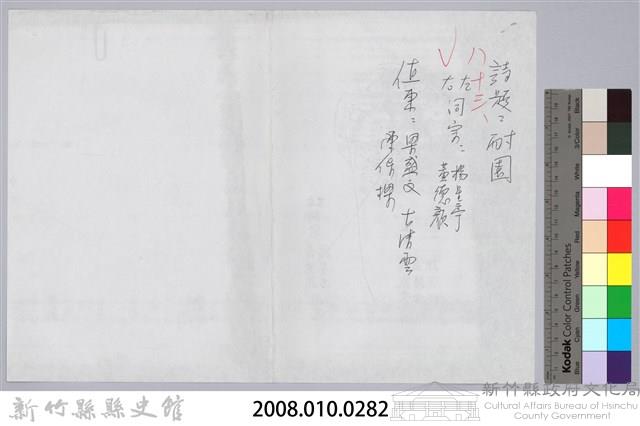 八十三、
詩題：耐園
左
右 詞宗：楊星亭
黃德順
值東：梁盛文 古清雲
陳保樸
Black
3/Color
White
Magenta
Red
Yellow
Green
Cyan
Blue
Kodak Color Control Patches
新竹縣縣史館
2008.010.0282
新竹縣政府文化局
Cultural Affairs Bureau of Hsinchu
County Government